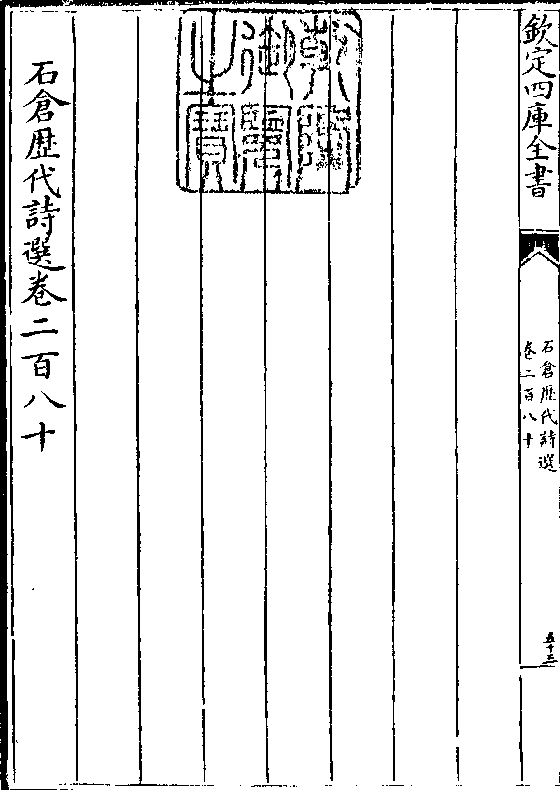 欽定四庫全書
石倉歴代詩選
卷二百八十
五十三
乾隆御覽之寶
石倉歴代詩選卷二百八十